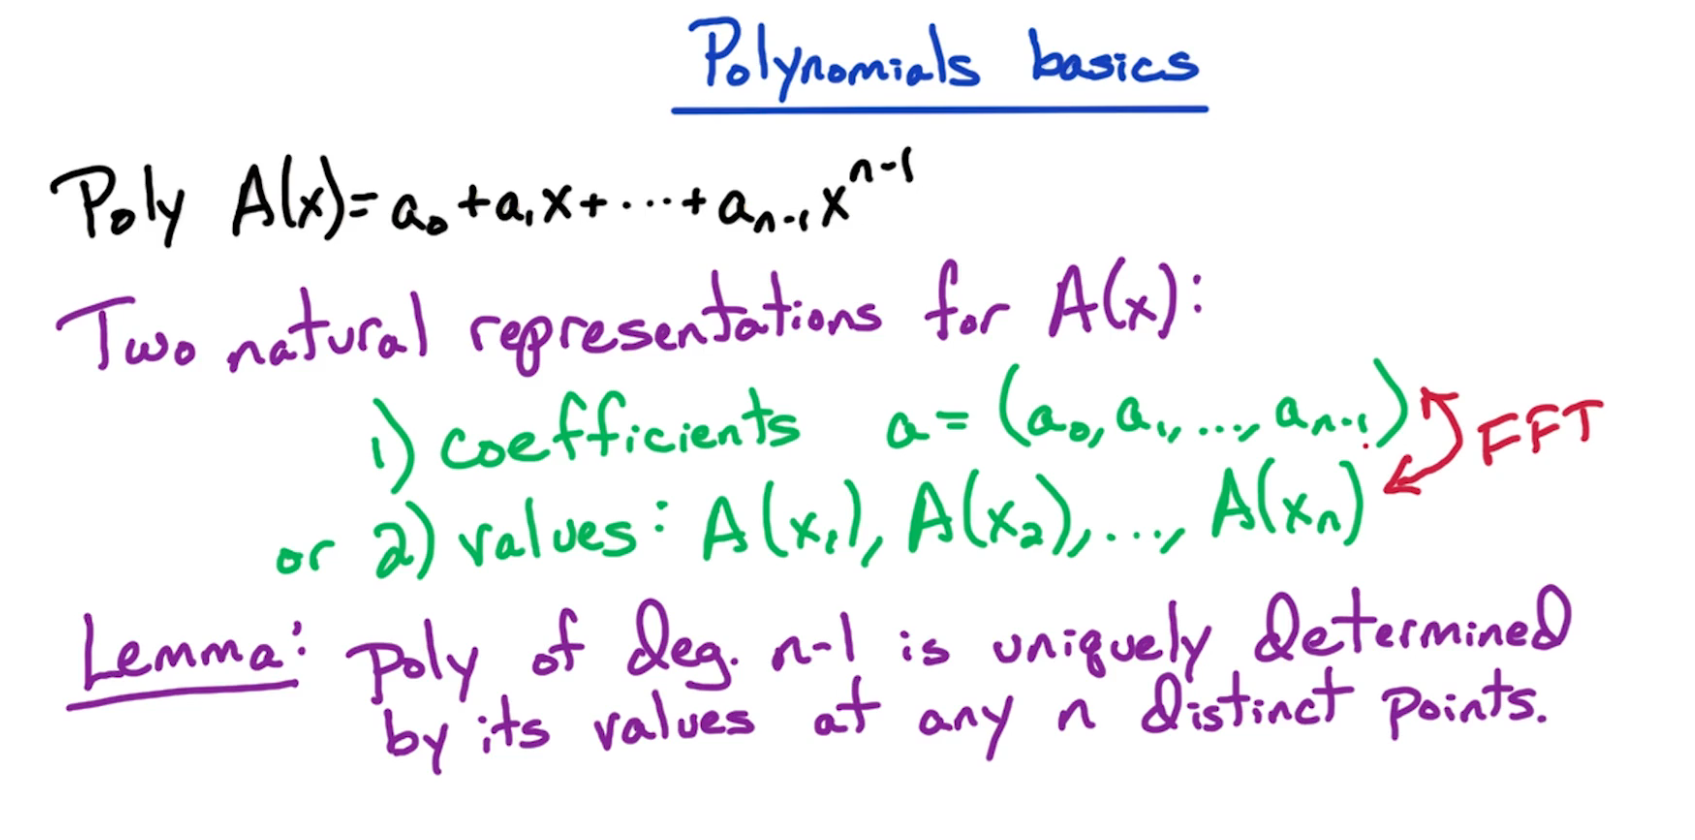 Polynomials basics
Poly A(x)= a₀ + a₁x + ··· + aₙ₋₁xⁿ⁻¹
Two natural representations for A(x):
1) coefficients a = (a₀, a₁, ..., aₙ₋₁)
FFT
or 2) values: A(x₁), A(x₂), ..., A(xₙ)
Lemma: poly of deg. n-1 is uniquely determined
by its values at any n distinct points.